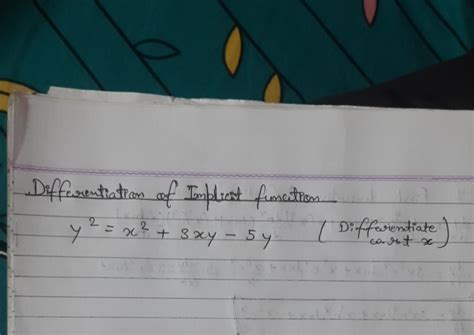 Differentiation of Implicit function
y² = x² + 3xy - 5y (Differentiate
w.r.t x)